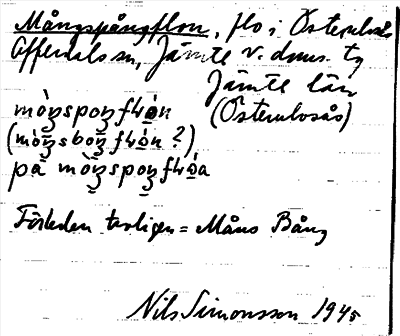 Mångspångflon, flo i Österulvsås
Offerdals sn, Jämtl. v. dms. tg
Jämtl. län
(Österulvsås)
mòŋspoŋfɬǿn
(mòŋsboŋfɬǿn?)
på mòŋspoŋfɬǿa
Förleden troligen = Måns Bång
Nils Simonsson 1945